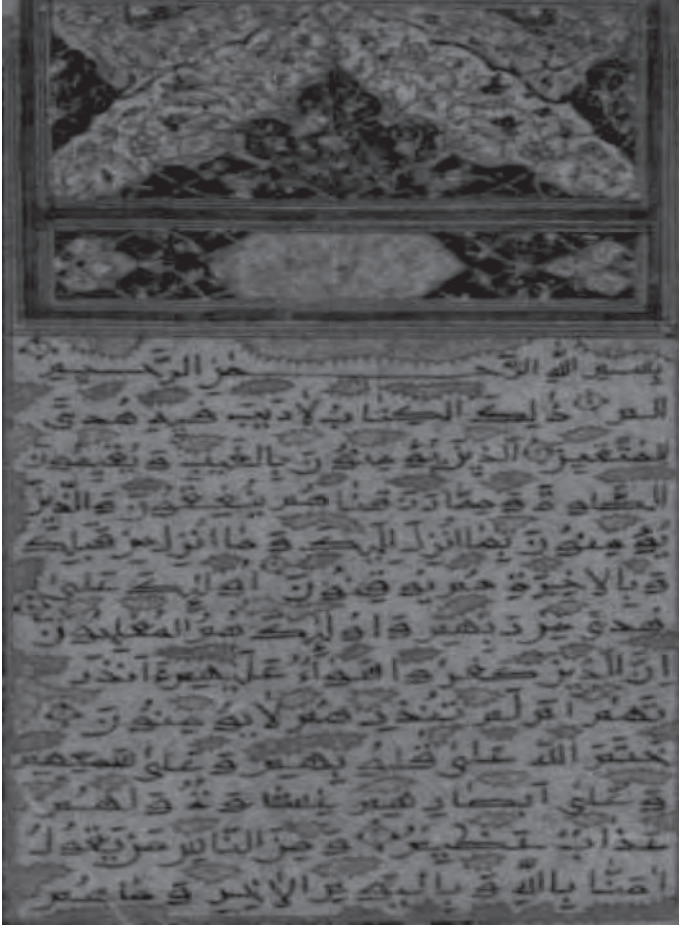 بِسْمِ اللهِ الرَّحْمٰنِ الرَّحِيمِ
الم ذٰلِكَ الْكِتٰابُ لَارَيْبَ فِيهِ هُدًى
لِلْمُتَّقِينَ الَّذِينَ يُؤْمِنُونَ بِالْغَيْبِ وَيُقِيمُونَ
الصَّلٰوةَ وَمِمَّا رَزَقْنٰاهُمْ يُنْفِقُونَ وَالَّذِينَ
يُؤْمِنُونَ بِمٰا اُنْزِلَ اِلَيْكَ وَمٰا اُنْزِلَ مِنْ قَبْلِكَ
وَبِالْاٰخِرَةِ هُمْ يُوقِنُونَ اُولٰئِكَ عَلٰى
هُدًى مِنْ رَبِّهِمْ وَاُولٰئِكَ هُمُ الْمُفْلِحُونَ
اِنَّ الَّذِينَ كَفَرُوا سَوٰاءٌ عَلَيْهِمْ ءَاَنْذَرْ
تَهُمْ اَمْ لَمْ تُنْذِرْهُمْ لٰا يُؤْمِنُونَ
خَتَمَ اللهُ عَلٰى قُلُوبِهِمْ وَعَلٰى سَمْعِهِمْ
وَعَلٰى اَبْصٰارِهِمْ غِشٰاوَةٌ وَلَهُمْ
عَذٰابٌ عَظِيمٌ وَمِنَ النَّاسِ مَنْ يَقُولُ
اٰمَنّٰا بِاللهِ وَبِالْيَوْمِ الْاٰخِرِ وَمٰا هُمْ